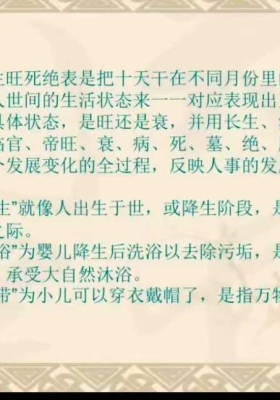 旺死绝表是把十天干在不同月份里
人世间的生活状态来一一对应表现出
具体状态，是旺还是衰，并用长生、
临官、帝旺、衰、病、死、墓、绝、
个发展变化的全过程，反映人事的发
生”就像人出生于世，或降生阶段，是
之际。
浴”为婴儿降生后洗浴以去除污垢，是
承受大自然沐浴。
带”为小儿可以穿衣戴帽了，是指万物